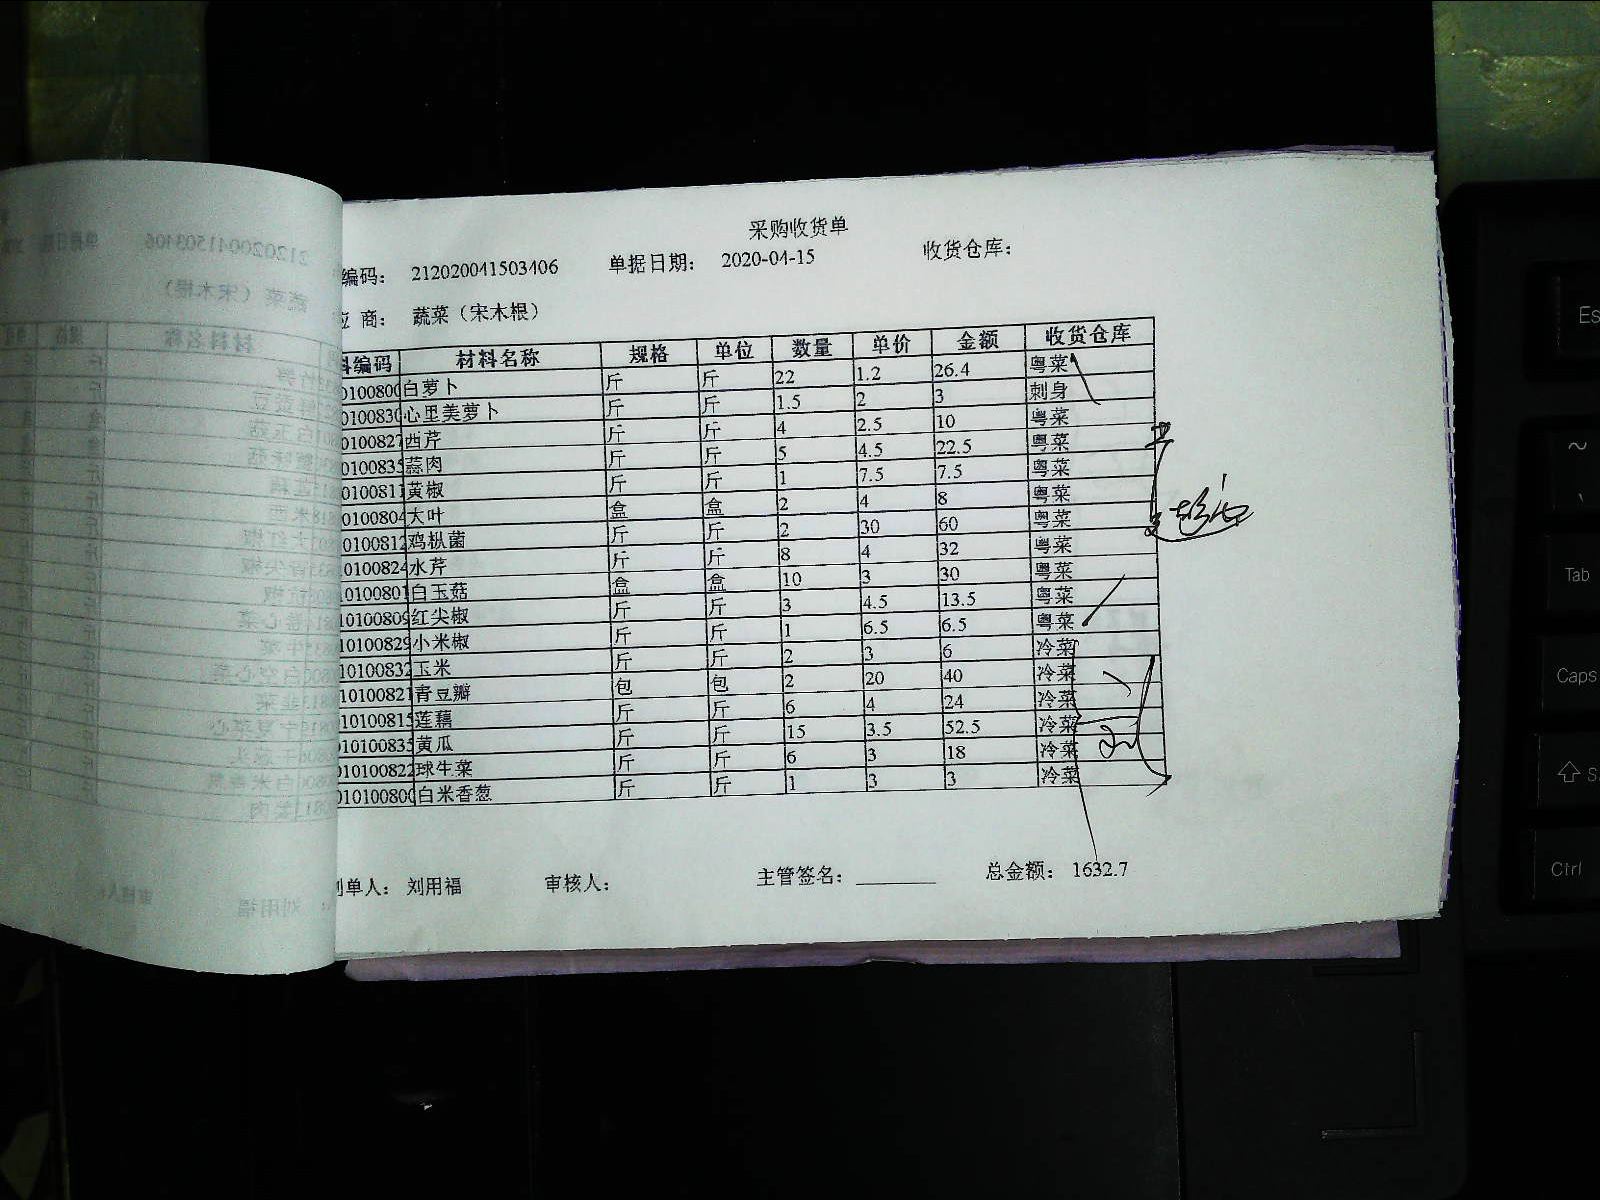 采购收货单
编码: 212020041503406 单据日期: 2020-04-15 收货仓库:
应 商: 蔬菜（宋木根）
料编码 材料名称 规格 单位 数量 单价 金额 收货仓库
0100800 白萝卜 斤 斤 22 1.2 26.4 粤菜
0100830 心里美萝卜 斤 斤 1.5 2 3 刺身
0100827 西芹 斤 斤 4 2.5 10 粤菜
0100835 蒜肉 斤 斤 5 4.5 22.5 粤菜
0100811 黄椒 斤 斤 1 7.5 7.5 粤菜
0100804 大叶 盒 盒 2 4 8 粤菜
0100812 鸡枞菌 斤 斤 2 30 60 粤菜
0100824 水芹 斤 斤 8 4 32 粤菜
0100801 白玉菇 盒 盒 10 3 30 粤菜
10100809 红尖椒 斤 斤 3 4.5 13.5 粤菜
10100829 小米椒 斤 斤 1 6.5 6.5 粤菜
10100832 玉米 斤 斤 2 3 6 冷菜
10100821 青豆瓣 包 包 2 20 40 冷菜
10100815 莲藕 斤 斤 6 4 24 冷菜
010100835 黄瓜 斤 斤 15 3.5 52.5 冷菜
010100822 球生菜 斤 斤 6 3 18 冷菜
010100800 白米香葱 斤 斤 1 3 3 冷菜
制单人: 刘用福 审核人: 主管签名: 总金额: 1632.7